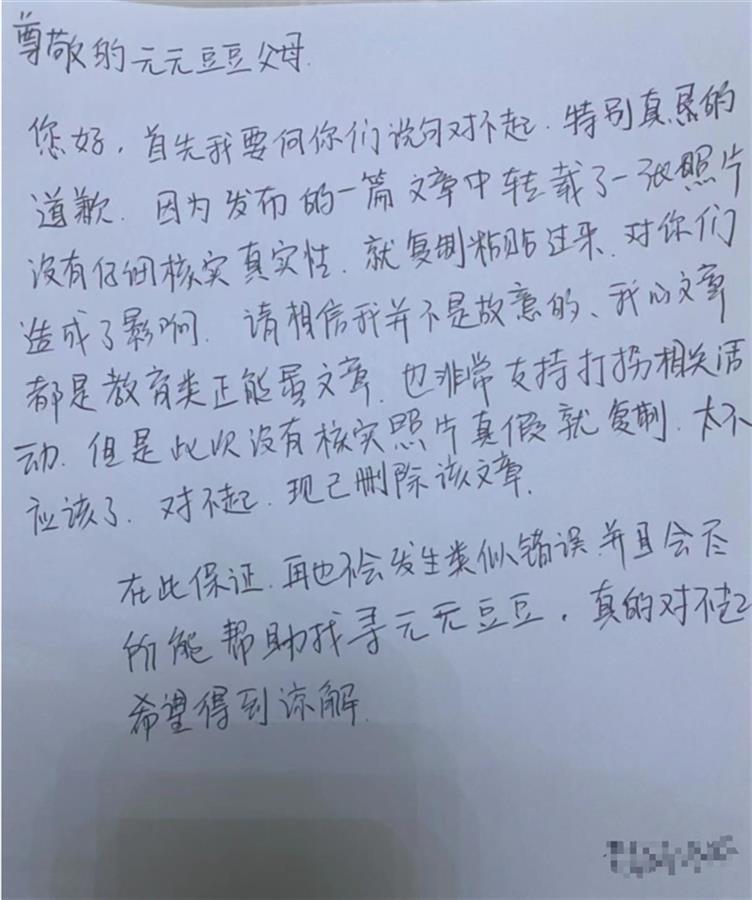 尊敬的元元豆豆父母.
您好，首先我要向你们说句对不起.特别真恳的
道歉.因为发布的一篇文章中转载了一张照片
没有仔细核实真实性.就复制粘贴过来.对你们
造成了影响.请相信我并不是故意的、我的文章
都是教育类正能量文章.也非常支持打拐相关活
动.但是此次没有核实照片真假就复制.太不
应该了.对不起.现已删除该文章.
在此保证.再也不会发生类似错误.并且会尽
所能帮助找寻元元豆豆，真的对不起
希望得到谅解.